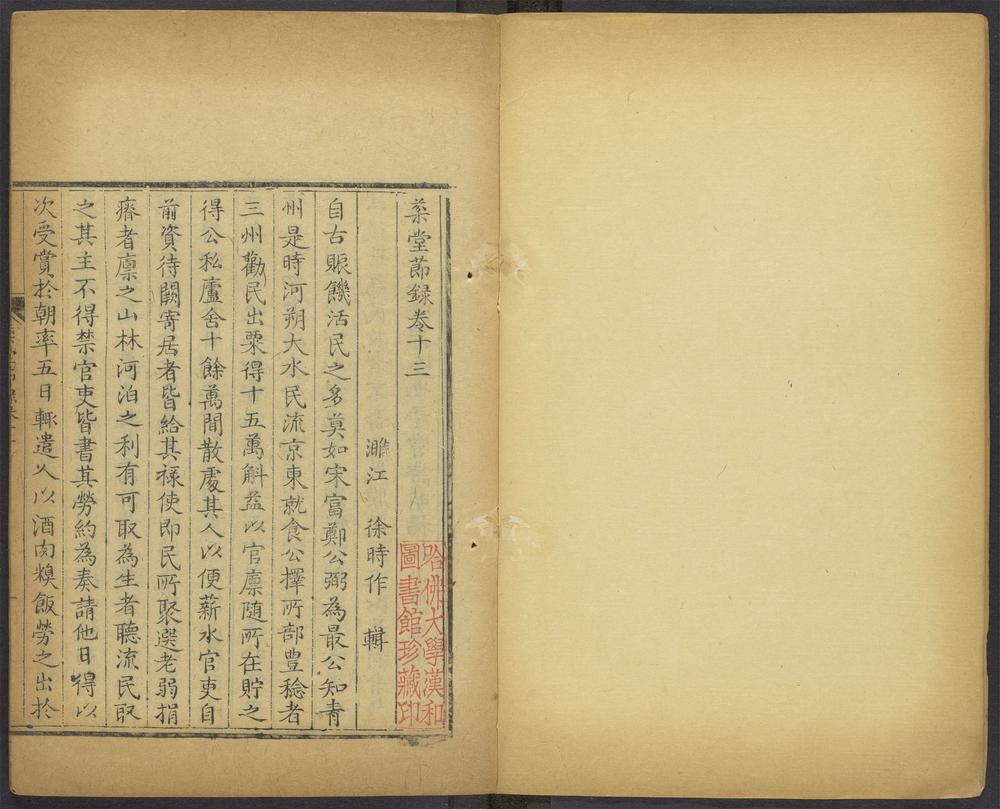 菜堂節録卷十三
濉江 徐時作 輯
自古賑饑活民之多莫如宋富鄭公弼為最公知青
州是時河朔大水民流京東就食公擇所部豊稔者
三州勸民出粟得十五萬斛益以官廪随所在貯之
得公私廬舍十餘萬間散處其人以便薪水官吏自
前資待闕寄居者皆給其祿使即民所聚選老弱捐
瘠者廪之山林河泊之利有可取為生者聽流民取
之其主不得禁官吏皆書其勞約為奏請他日得以
次受賞於朝率五日輙遣人以酒肉糗飯勞之出於
哈佛大學漢和
圖書館珍藏印